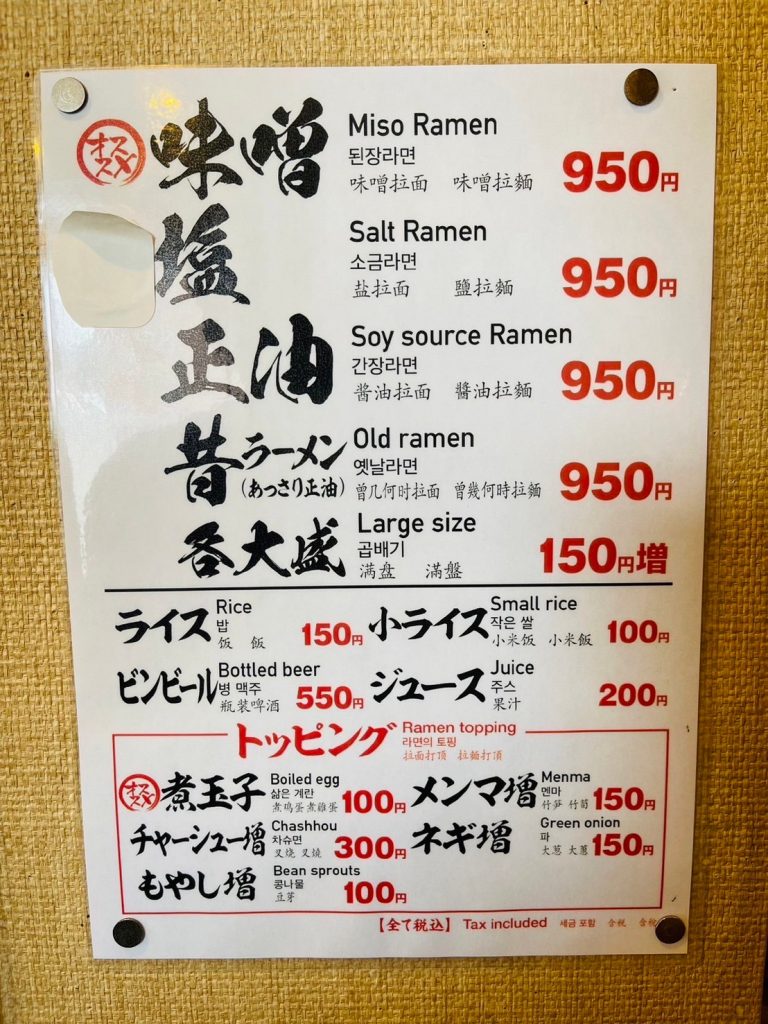 オススメ
味噌 Miso Ramen
된장라면
味噌拉面 味噌拉麵 950円
塩 Salt Ramen
소금라면
盐拉面 鹽拉麵 950円
正油 Soy source Ramen
간장라면
酱油拉面 醬油拉麵 950円
昔ラーメン Old ramen
(あっさり正油) 옛날라면
曾几何时拉面 曾幾何時拉麵 950円
各大盛 Large size
곱배기
满盘 滿盤 150円増
ライス Rice
밥
饭 飯 150円
小ライス Small rice
작은 쌀
小米饭 小米飯 100円
ビンビール Bottled beer
병 맥주
瓶装啤酒 550円
ジュース Juice
주스
果汁 200円
トッピング Ramen topping
라면의 토핑
拉面打顶 拉麵打頂
オススメ
煮玉子 Boiled egg
삶은 계란
煮鸡蛋 煮雞蛋 100円
メンマ増 Menma
멘마
竹笋 竹筍 150円
チャーシュー増 Chashhou
차슈면
叉烧 叉燒 300円
ネギ増 Green onion
파
大葱 大蔥 150円
もやし増 Bean sprouts
콩나물
豆芽 100円
【全て税込】 Tax included 세금 포함 含税 含稅